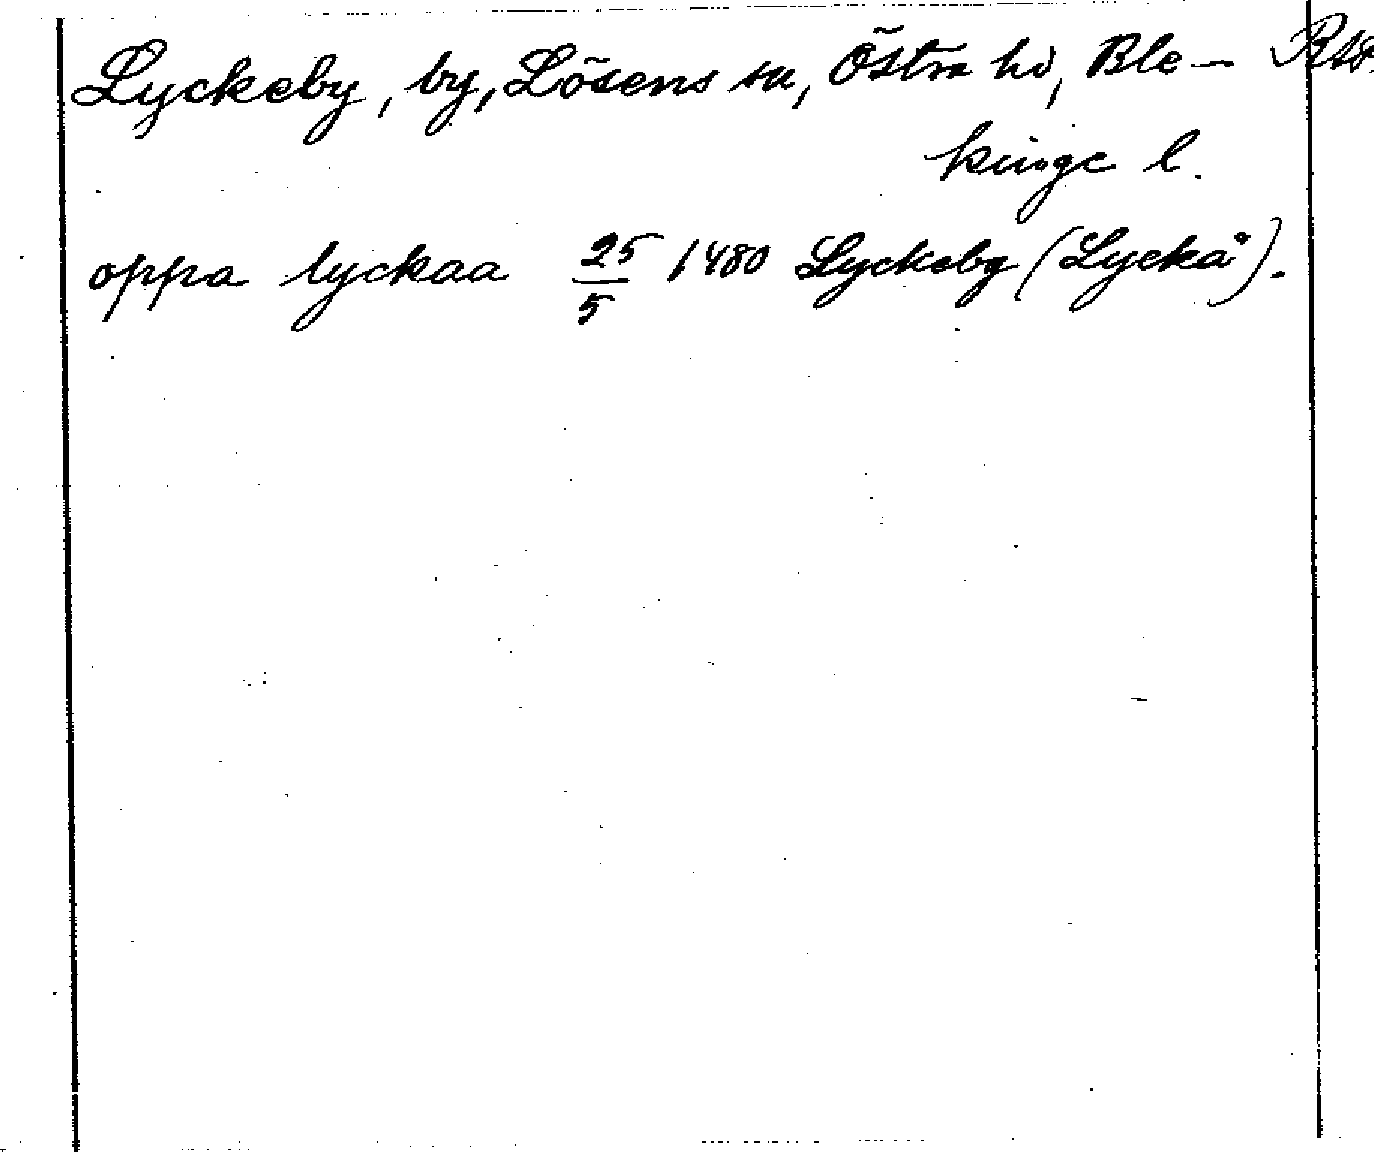 Lyckeby, by, Lösens sn, Östra hd, Ble-
kinge l.
oppa lyckaa 25/5 1480 Lyckeby (Lyckå).